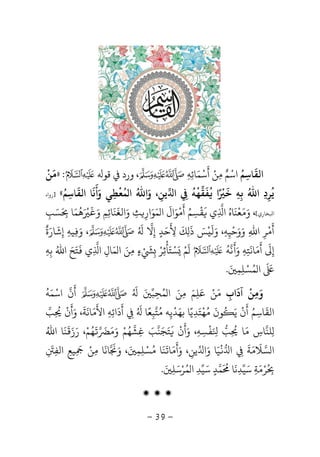 القاسم
القَاسِمُ اسْمٌ مِنْ أَسْمَائِهِ ﷺ، ورد في قوله عَلَيْهِ الصَّلَاةُ وَالسَّلَامُ: «مَنْ
يُرِدِ اللهُ بِهِ خَيْرًا يُفَقِّهْهُ فِي الدِّينِ، وَاللهُ المُعْطِي وَأَنَا القَاسِمُ» [رواه
البخاري]، وَمَعْنَاهُ الَّذِي يَقْسِمُ أَمْوَالَ المَوَارِيثِ وَالغَنَائِمِ وَغَيْرَهُمَا بِحَسَبِ
أَمْرِ اللهِ وَوَحْيِهِ، وَلَيْسَ ذَلِكَ لِأَحَدٍ إِلَّا لَهُ ﷺ، وَفِيهِ إِشَارَةٌ
إِلَى أَمَانَتِهِ وَأَنَّهُ عَلَيْهِ السَّلَامُ لَمْ يَسْتَأْثِرْ بِشَيْءٍ مِنَ المَالِ الَّذِي فَتَحَ اللهُ بِهِ
عَلَى المُسْلِمِينَ.
وَمِنْ آدَابِ مَنْ عَلِمَ مِنَ المُحِبِّينَ لَهُ ﷺ أَنَّ اسْمَهُ
القَاسِمُ أَنْ يَكُونَ مُهْتَدِيًا بِهَدْيِهِ مُتَّبِعًا لَهُ فِي أَدَائِهِ الأَمَانَةَ، وَأَنْ يُحِبَّ
لِلنَّاسِ مَا يُحِبُّ لِنَفْسِهِ، وَأَنْ يَتَجَنَّبَ غِشَّهُمْ وَمَضَرَّتَهُمْ، رَزَقَنَا اللهُ
السَّلَامَةَ فِي الدُّنْيَا وَالدِّينِ، وَأَمَاتَنَا مُسْلِمِينَ، وَنَجَّانَا مِنْ جَمِيعِ الفِتَنِ
بِحُرْمَةِ سَيِّدِنَا مُحَمَّدٍ سَيِّدِ المُرْسَلِينَ.
- 39 -